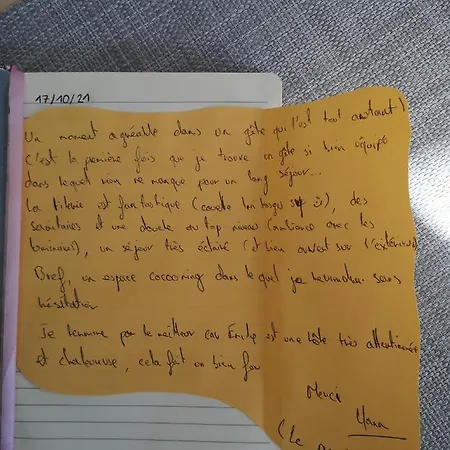 17/10/21
Un moment agréable dans un gîte qui l'est tout autant !
C'est la première fois que je trouve un gîte si bien équipé
dans lequel rien ne manque pour un long séjour...
La literie est fantastique (couette bonus), des
sanitaires et une douche au top niveau (ambiance avec les
lumières), un séjour très éclairé (et bien ouvert sur l'extérieur)
Bref, un espace cocooning dans lequel je reviendrai sans
hésitation
Je termine par le meilleur car Emily est une hôte très attentionnée
et chaleureuse, cela fait un bien fou
Merci
(Le